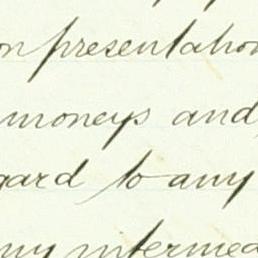 on presentation
moneys and
gard to any
my intermed